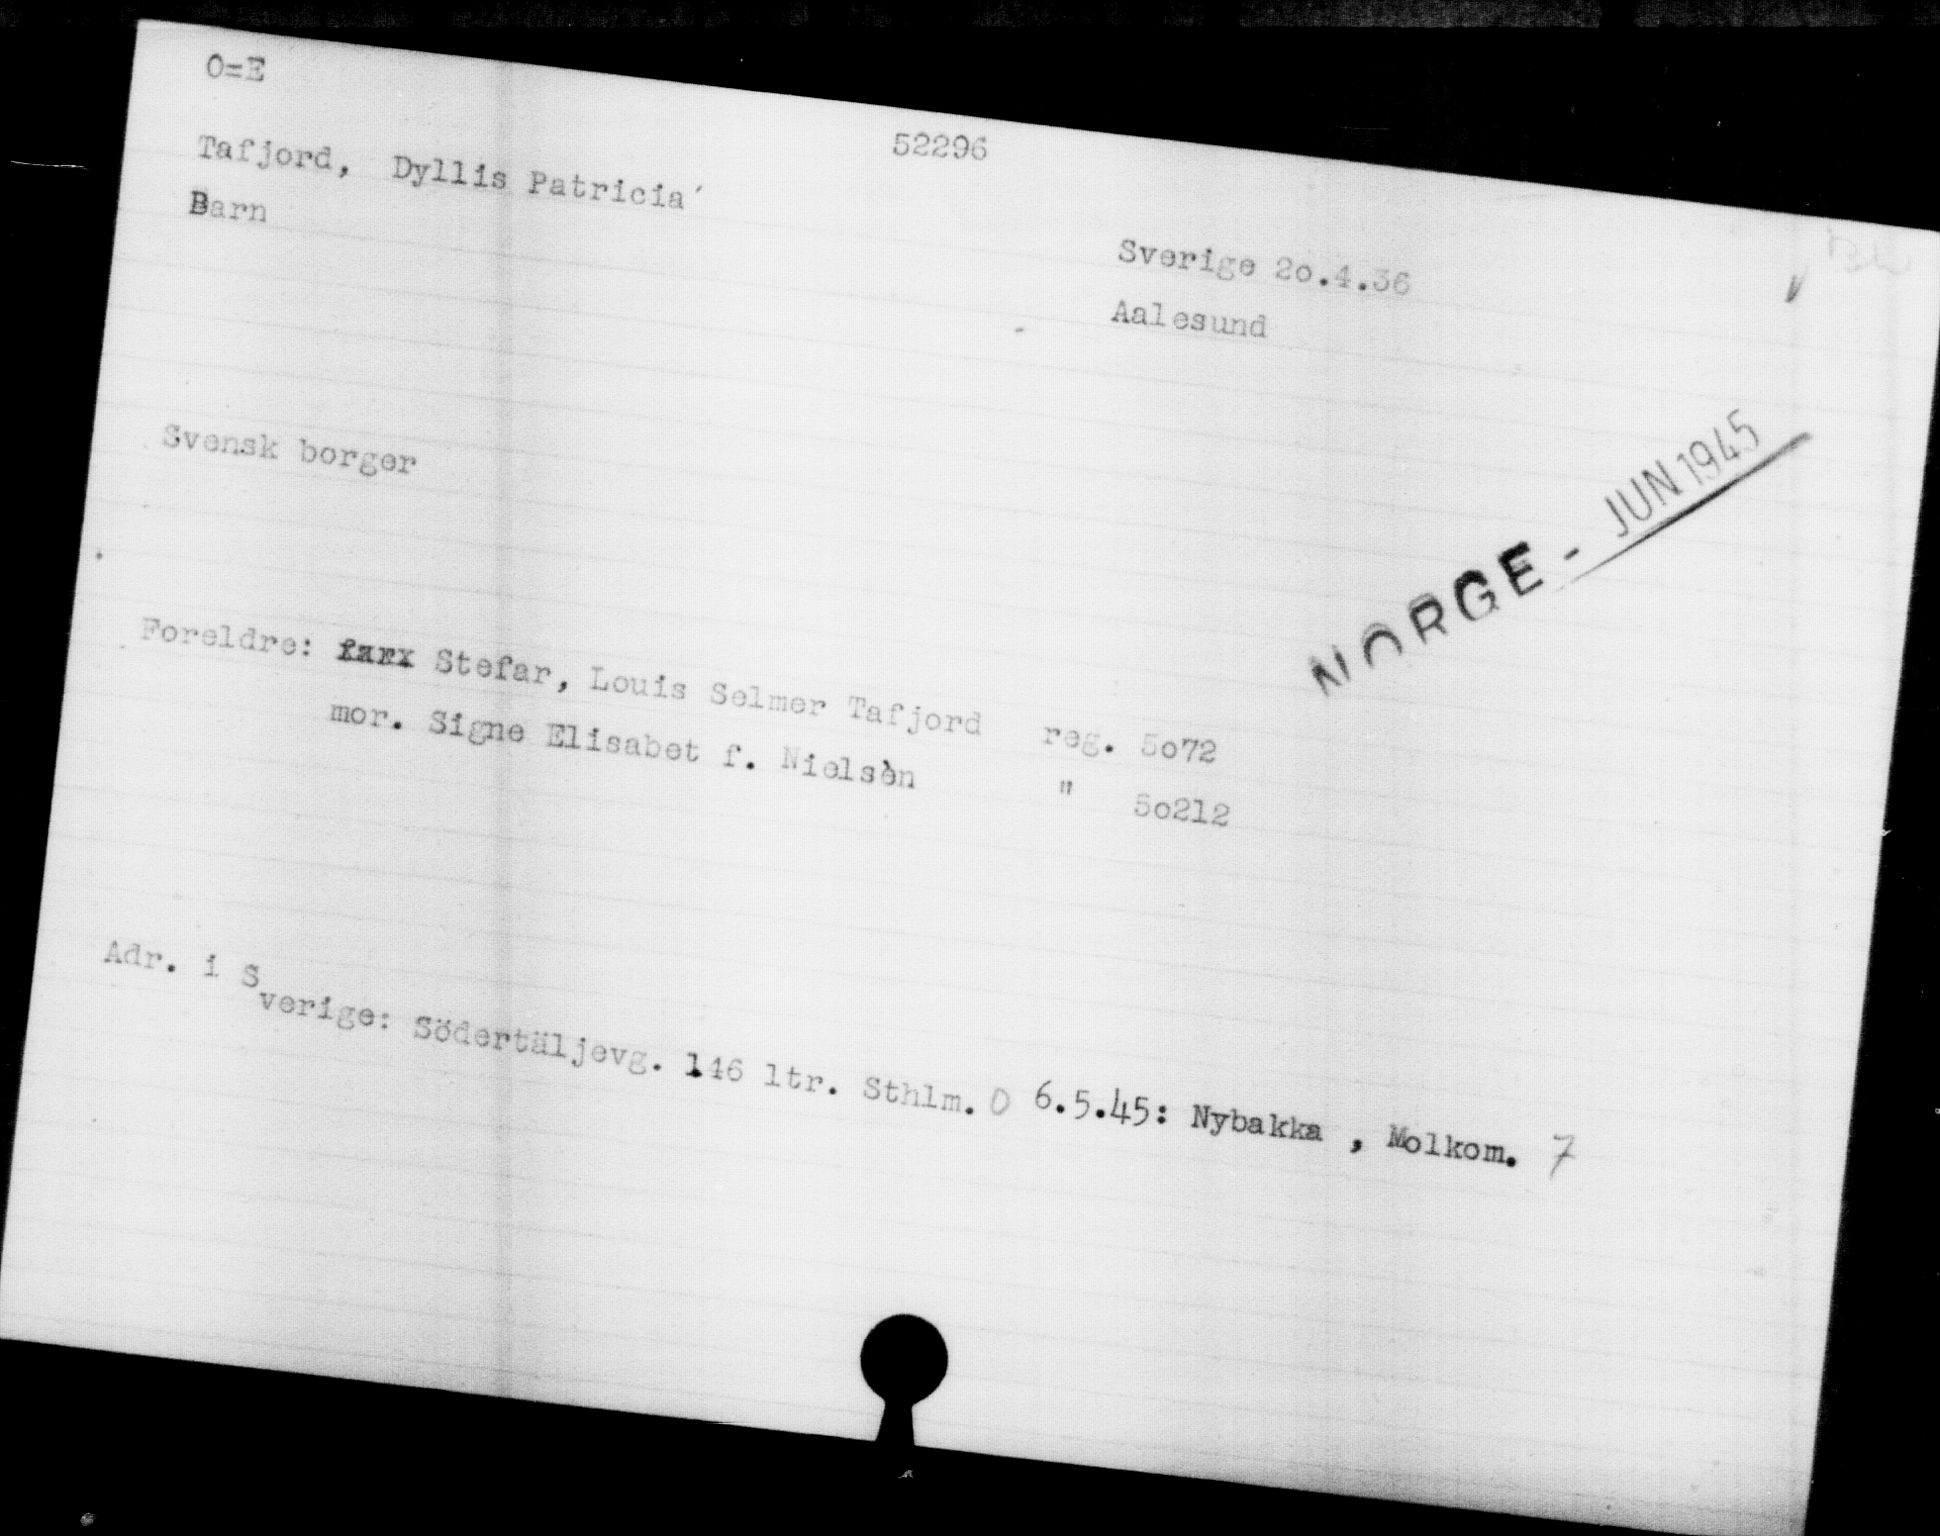 O=E
52296
Tafjord, Dyllis Patricia
Barn
Sverige 2o.4.36
Aalesund
Svensk borger
NORGE - JUN 1945
Foreldre: farx Stefar, Louis Selmer Tafjord reg. 5o72
mor. Signe Elisabet f. Nielsèn " 5o212
Adr. i Sverige: Södertäljevg. 146 ltr. Sthlm. O 6.5.45: Nybakka , Molkom. 7